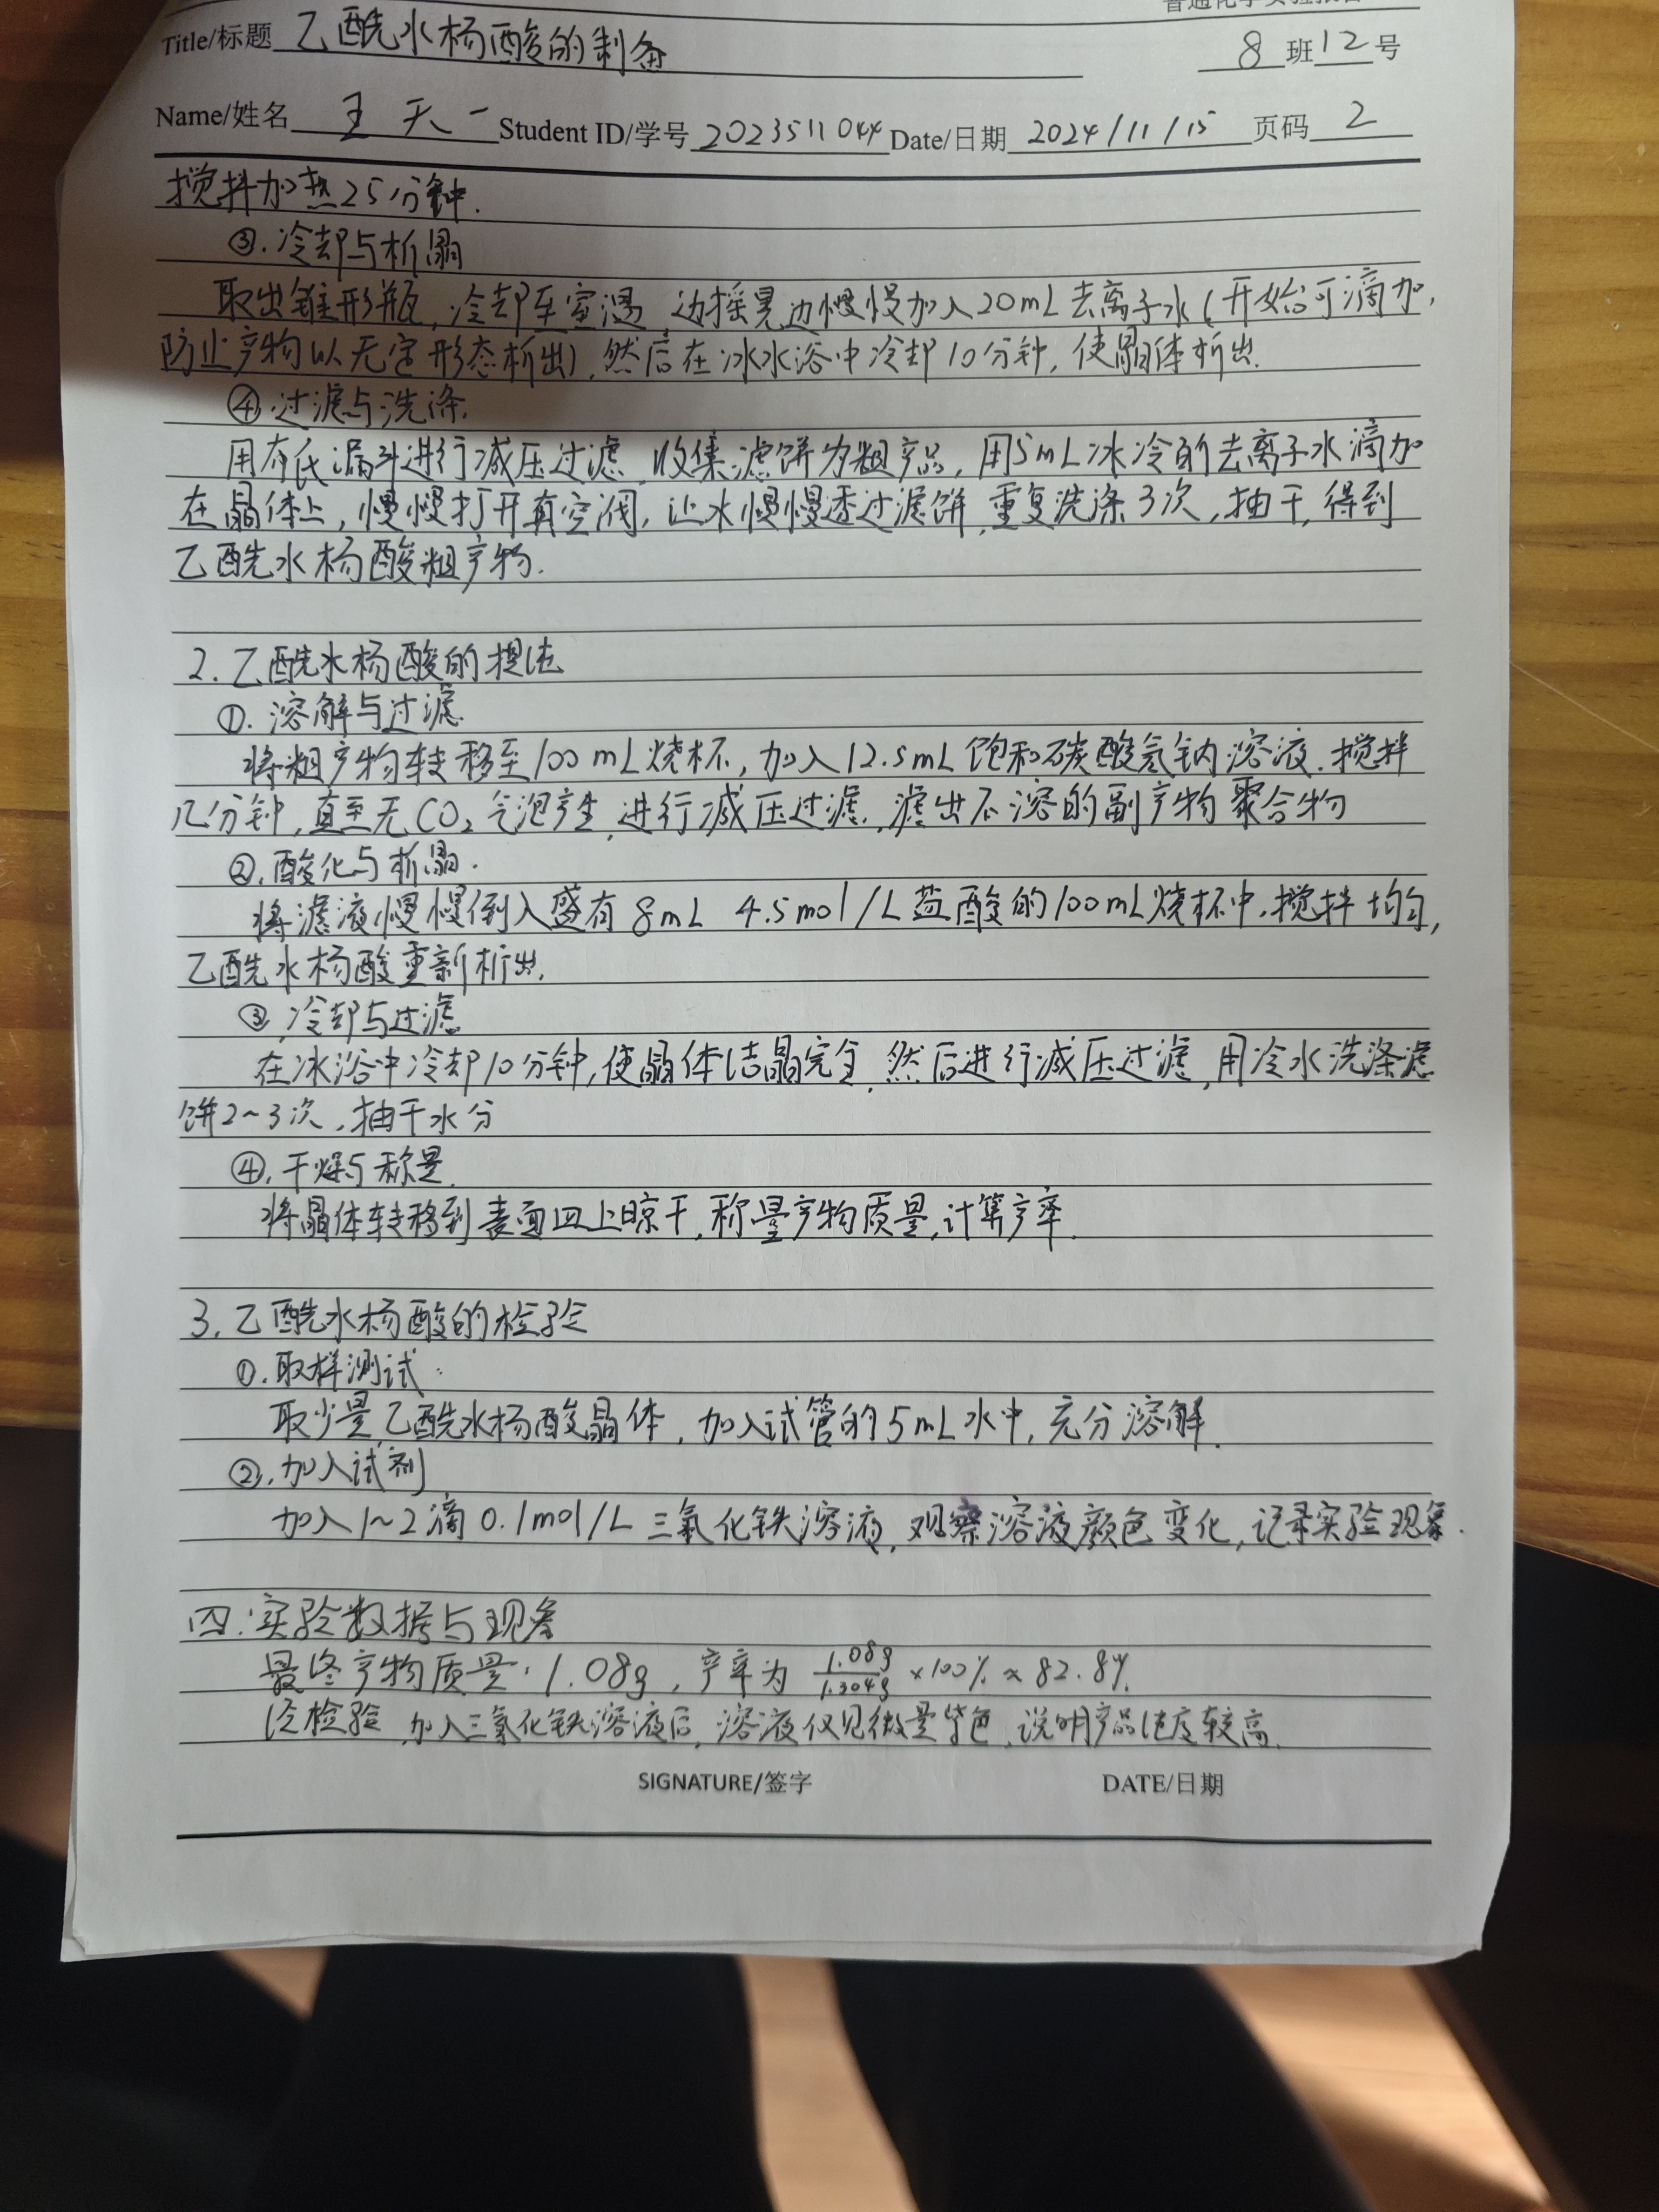 Title/标题 乙酰水杨酸的制备
8 班 12 号
Name/姓名 王天一 Student ID/学号 2023511044 Date/日期 2024/11/15 页码 2
搅拌加热25分钟.
③.冷却与析晶
取出锥形瓶,冷却至室温,边摇晃边慢慢加入20mL去离子水(开始可滴加,
防止产物以无定形态析出),然后在冰水浴中冷却10分钟,使晶体析出.
④.过滤与洗涤.
用布氏漏斗进行减压过滤,收集滤饼为粗产品,用5mL冰冷的去离子水滴加
在晶体上,慢慢打开真空阀,让水慢慢透过滤饼,重复洗涤3次,抽干,得到
乙酰水杨酸粗产物.
2.乙酰水杨酸的提纯
①.溶解与过滤.
将粗产物转移至100mL烧杯,加入12.5mL饱和碳酸氢钠溶液.搅拌
几分钟,直至无CO₂气泡产生,进行减压过滤,滤出不溶的副产物聚合物
②.酸化与析晶.
将滤液慢慢倒入盛有8mL 4.5mol/L盐酸的100mL烧杯中.搅拌均匀,
乙酰水杨酸重新析出.
③.冷却与过滤
在冰浴中冷却10分钟,使晶体结晶完全,然后进行减压过滤,用冷水洗涤滤
饼2~3次,抽干水分
④.干燥与称量.
将晶体转移到表面皿上晾干,称量产物质量,计算产率.
3.乙酰水杨酸的检验
①.取样测试:
取少量乙酰水杨酸晶体,加入试管的5mL水中,充分溶解.
②.加入试剂
加入1~2滴0.1mol/L三氯化铁溶液,观察溶液颜色变化,记录实验现象.
四.实验数据与现象
最终产物质量:1.08g,产率为 1.08g/1.304g ×100% ≈ 82.8%.
经检验,加入三氯化铁溶液后,溶液仅见微量紫色,说明产品纯度较高.
SIGNATURE/签字 DATE/日期